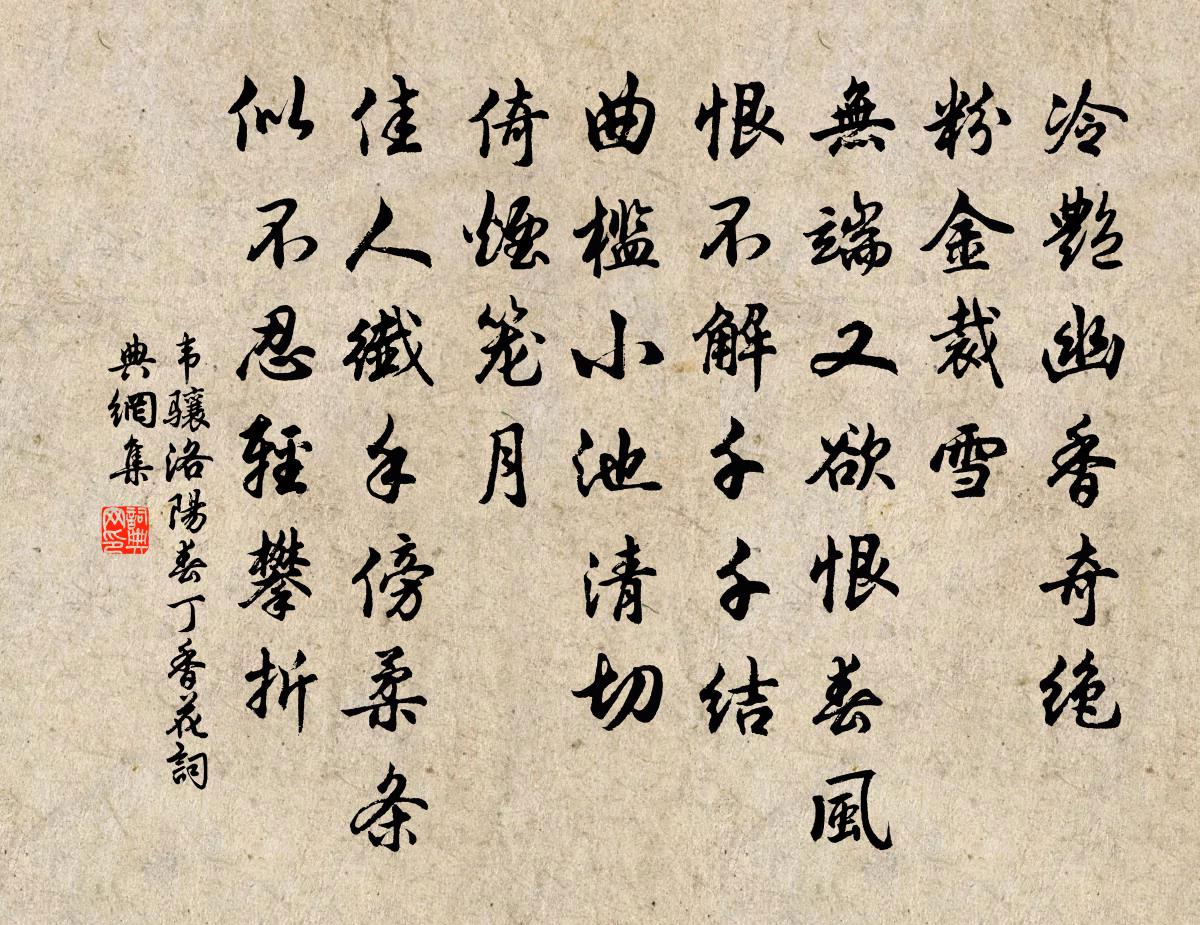 冷艷幽香奇绝
粉金裁雪
無端又欲恨春風
恨不解千千结
曲檻小池清切
倚煙笼月
佳人纖手傍柔条
似不忍輕攀折
韦骧洛陽春丁香花詞
典網集
詞典網印